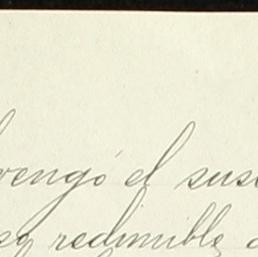 vengó el sus
so redimible